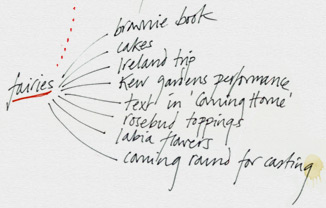 brownie book
cakes
Ireland trip
fairies
Kew gardens performance
text in 'Coming Home'
rosebud toppings
labia flavers
coming round for casting